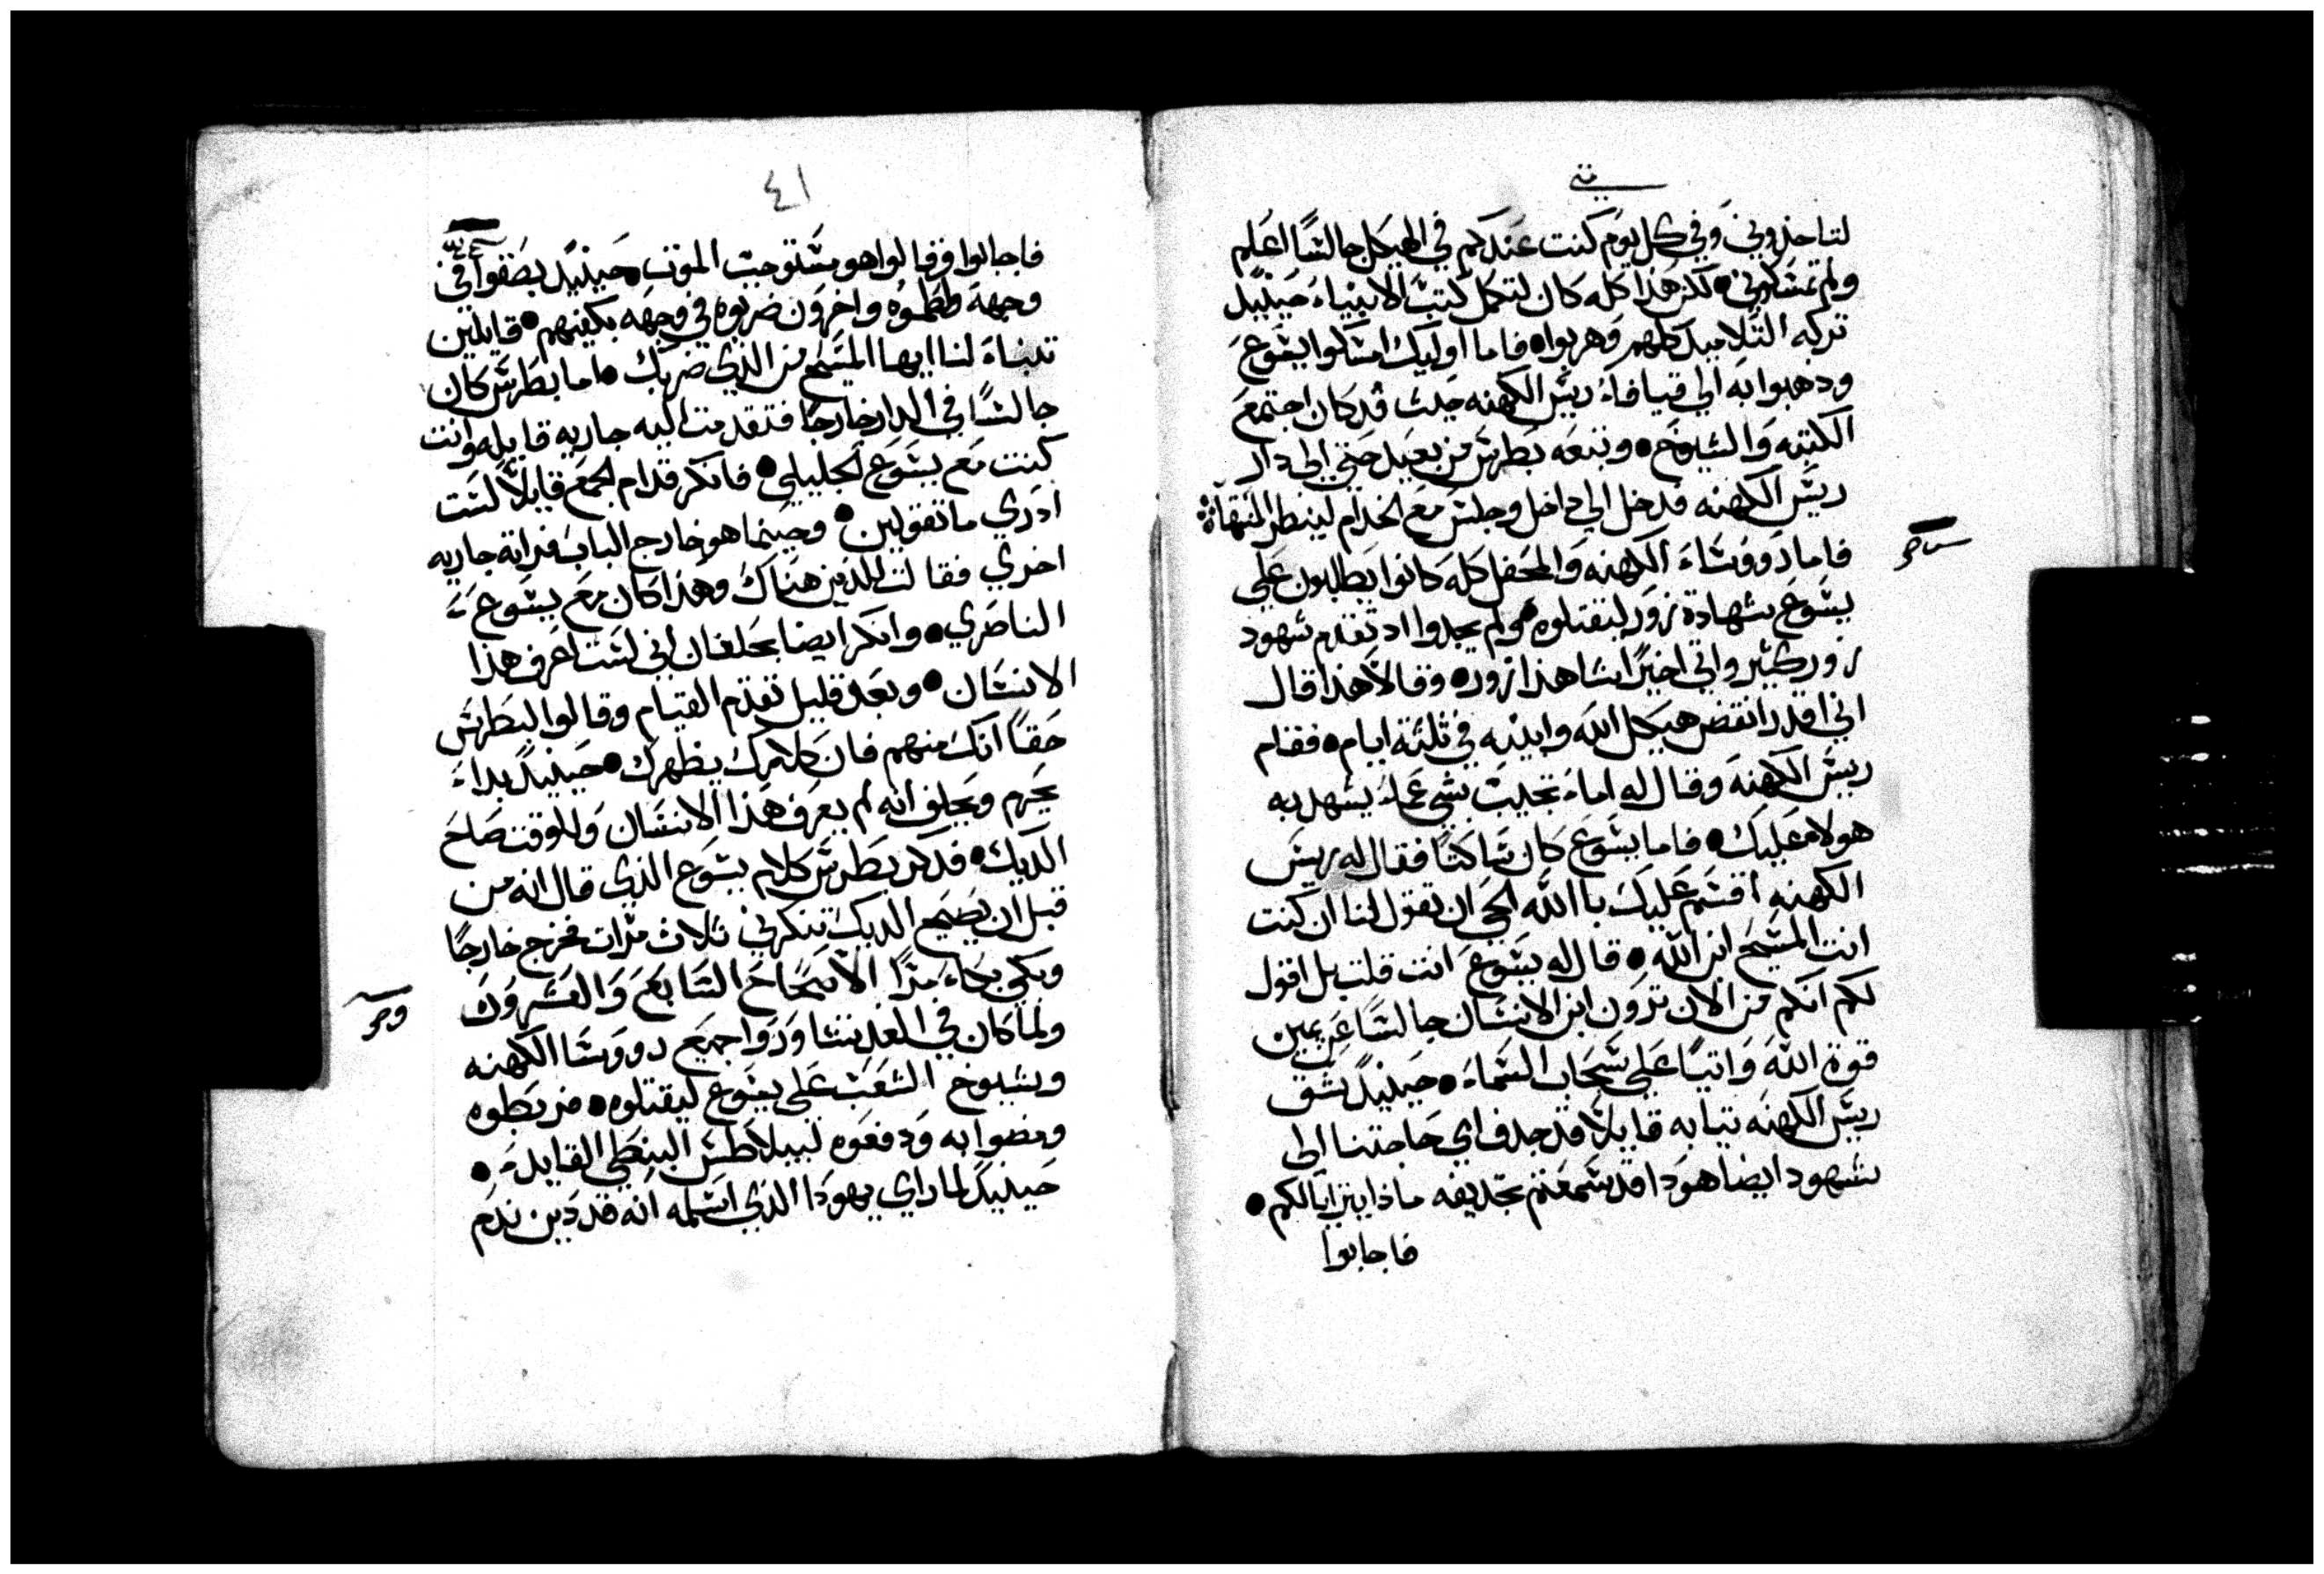 متي
لتاخذوني وفي كل يوم كنت عندكم في الهيكل جالسًا اعلم
ولم تمسكوني • لكن هذا كله كان لتكمل كتب الانبياء حينيد
تركه التلاميد كلهم وهربوا • فاما اوليك امسكوا يسوع
ودهبوا به الي قيافاء ريس الكهنه حيث قد كان اجتمع
الكتبه والشيوخ • وتبعه بطرس من بعيد حتي الي دار
ريس الكهنه فدخل الي داخل وجلس مع الخدام لينظر المنتهاة
فاما دووساء الكهنه والمحفل كله كانوا يطلبون علي
يسوع شهادة زور ليقتلوه • ولم يجدوا اد تقدم شهود
زور كثير واتي اخيرًا شاهدا زور • وقالا هذا قال
اني اقدر انقض هيكل الله وابنيه في ثلثة ايام • فقام
ريس الكهنه وقال له اماء تجيب بشي عماء يشهد به
هولاء عليك • فاما يسوع كان ساكتا فقال له ريس
الكهنه اقسم عليك با الله الحي ان تقول لنا ان كنت
انت المسيح ابن الله • قال له يسوع انت قلت بل اقول
لكم انكم من الان ترون ابن الانسان جالسًا عن يمين
قوة الله واتيًا علي سحاب السماء • حينيدٍ شق
ريس الكهنه تيابه قايلًا قد جدف اي حاجتنا الي
شهود ايضا هودا قد سمعتم تجديفه ماذا يترايالكم •
فاجابوا
٤١
فاجابوا وقالوا هو مستوجب الموت • حينيدٍ بصقوا في
وجهه ولطموه واخرون ضربوه في وجهه بكفيهم • قايلين
تنباء لنا ايها المسيح من الذي ضربك • اما بطرس كان
جالسًا في الدار خارجًا فتقدمت اليه جاريه قايله وانت
كنت مع يسوع الجليلي • فانكر قدام الجمع قايلًا لست
ادري ما تقولين • وحينما هو خارج الباب فراته جاريه
اخري فقالت للدين هناك وهذا كان مع يسوع
الناصري • وانكر ايضا بحلفان اني لست اعرف هذا
الانسان • وبعد قليل تقدم القيام وقالوا لبطرس
حقًا انك منهم فان كلامك يظهرك • حينيدٍ بداء
يحرم ويحلف انه لم يعرف هذا الانسان وللوقت صاح
الديك • فدكر بطرس كلام يسوع الذي قال انه من
قبل ان يصيح الديك تنكرني ثلاث مرات فخرج خارجًا
وبكي بكاء مرًا الاصحاح السابع والعشرون
ولما كان في الغد تشاوروا جميع دووسا الكهنه
وشيوخ الشعب علي يسوع ليقتلوه • فربطوه
ومضوا به ودفعوه لبيلاطس البنطي القايد •
حينيدٍ لما راي يهودا الذي اسلمه انه قد دين ندم